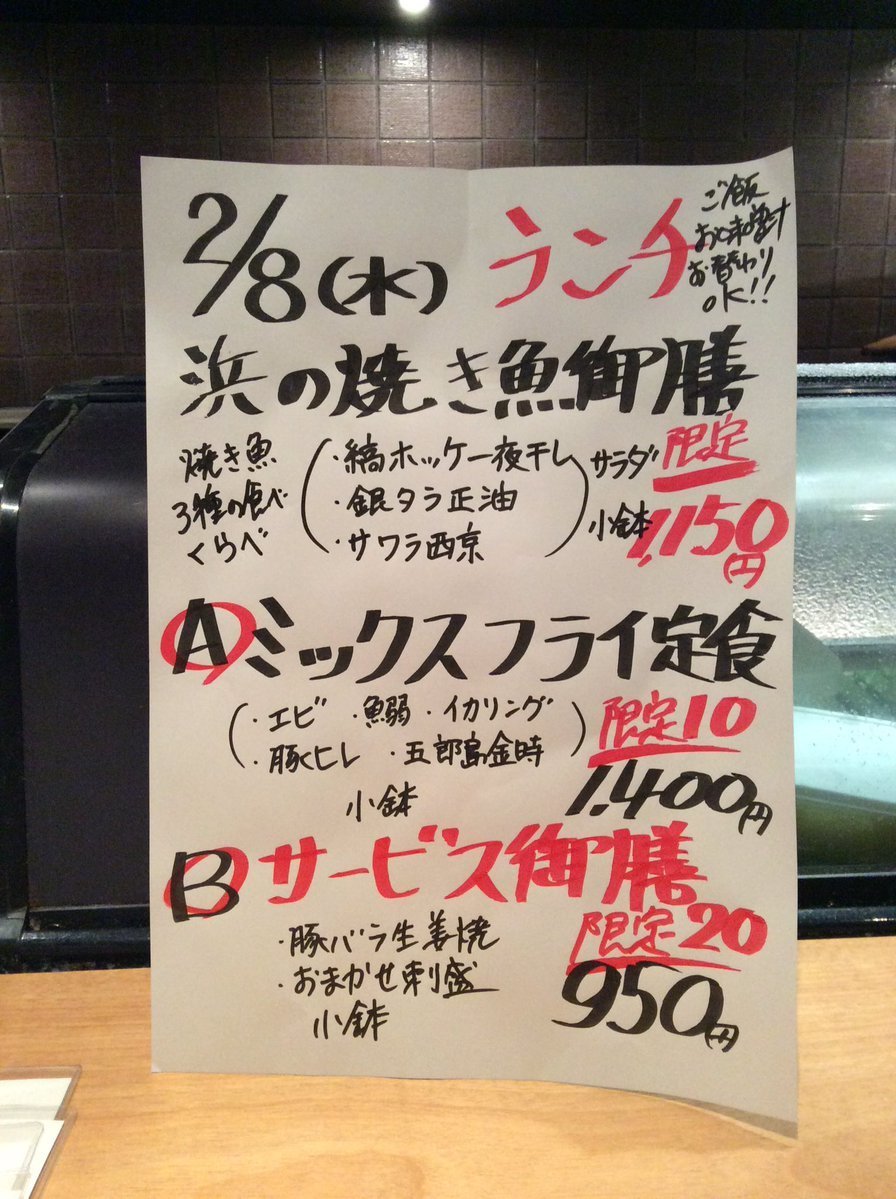 2/8(水) ランチ
ご飯
お味噌汁
お替わり
OK!!
浜の焼き魚御膳
焼き魚
3種の食べ
くらべ
・縞ホッケ一夜干し
・銀タラ正油
・サワラ西京
サラダ
小鉢
限定
1,150円
Aミックスフライ定食
(・エビ ・魚弱 ・イカリング
・豚ヒレ ・五郎島金時)
小鉢
限定10
1,400円
Bサービス御膳
・豚バラ生姜焼
・おまかせ刺盛
小鉢
限定20
950円